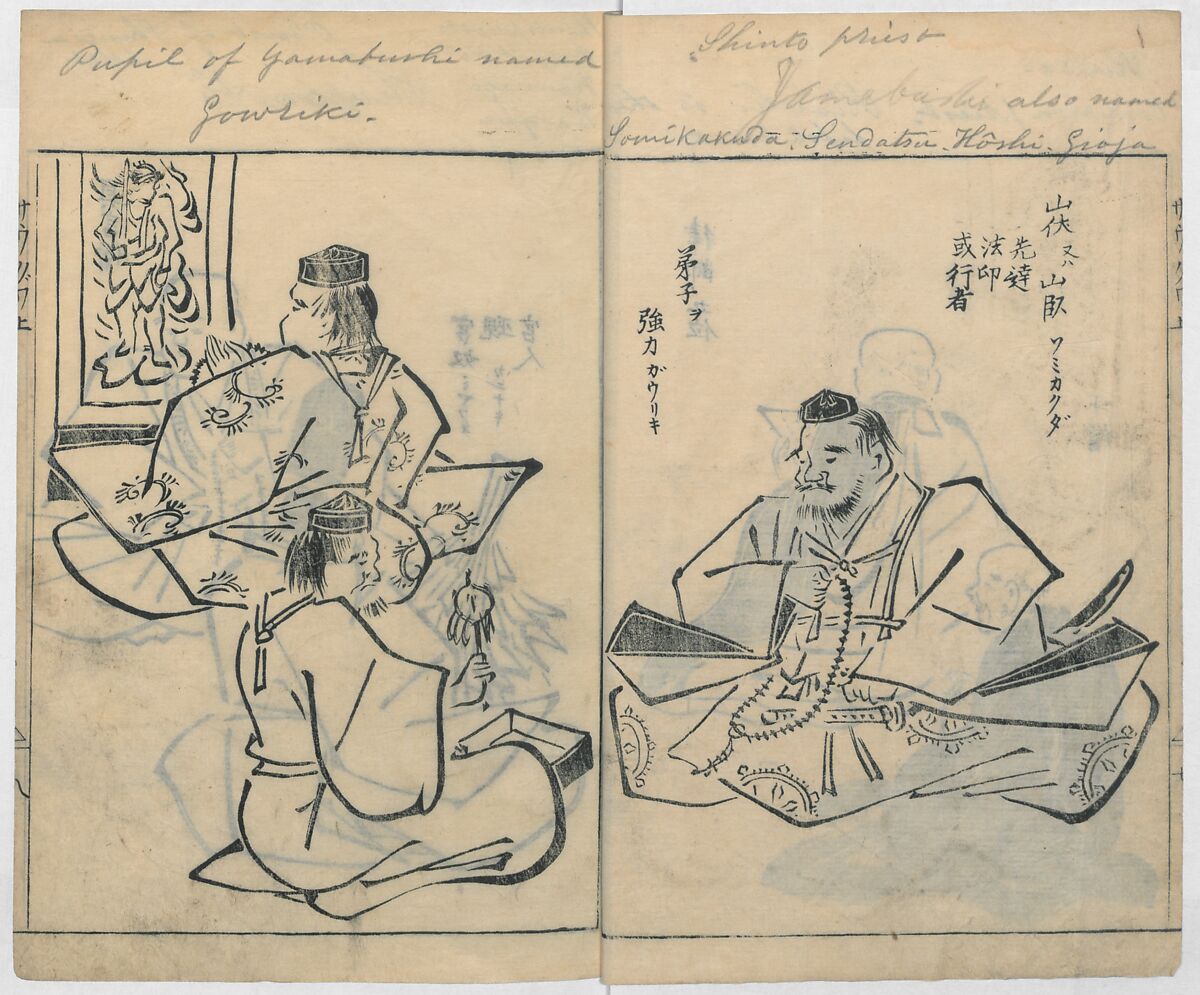 Pupil of Yamabushi named
Gowriki.
Shinto priest
Yamabushi also named
Somikakuda. Sendatsu. Hôshi. Gioja
山伏 又ハ 山臥 ソミカクダ
先達
法印
或行者
弟子ヲ
強力 ガウリキ